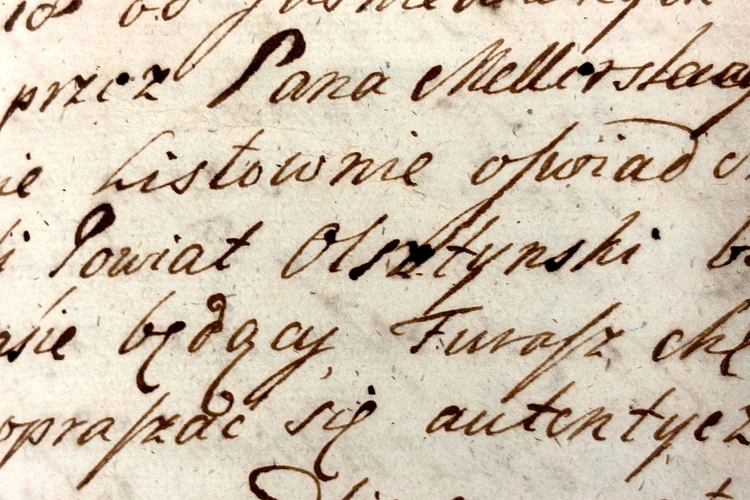 przez Pana Mellersta
ie Listownie oświadc
i Powiat Olsztynski b
asie będący Furasz chę
opraszać się autentycz